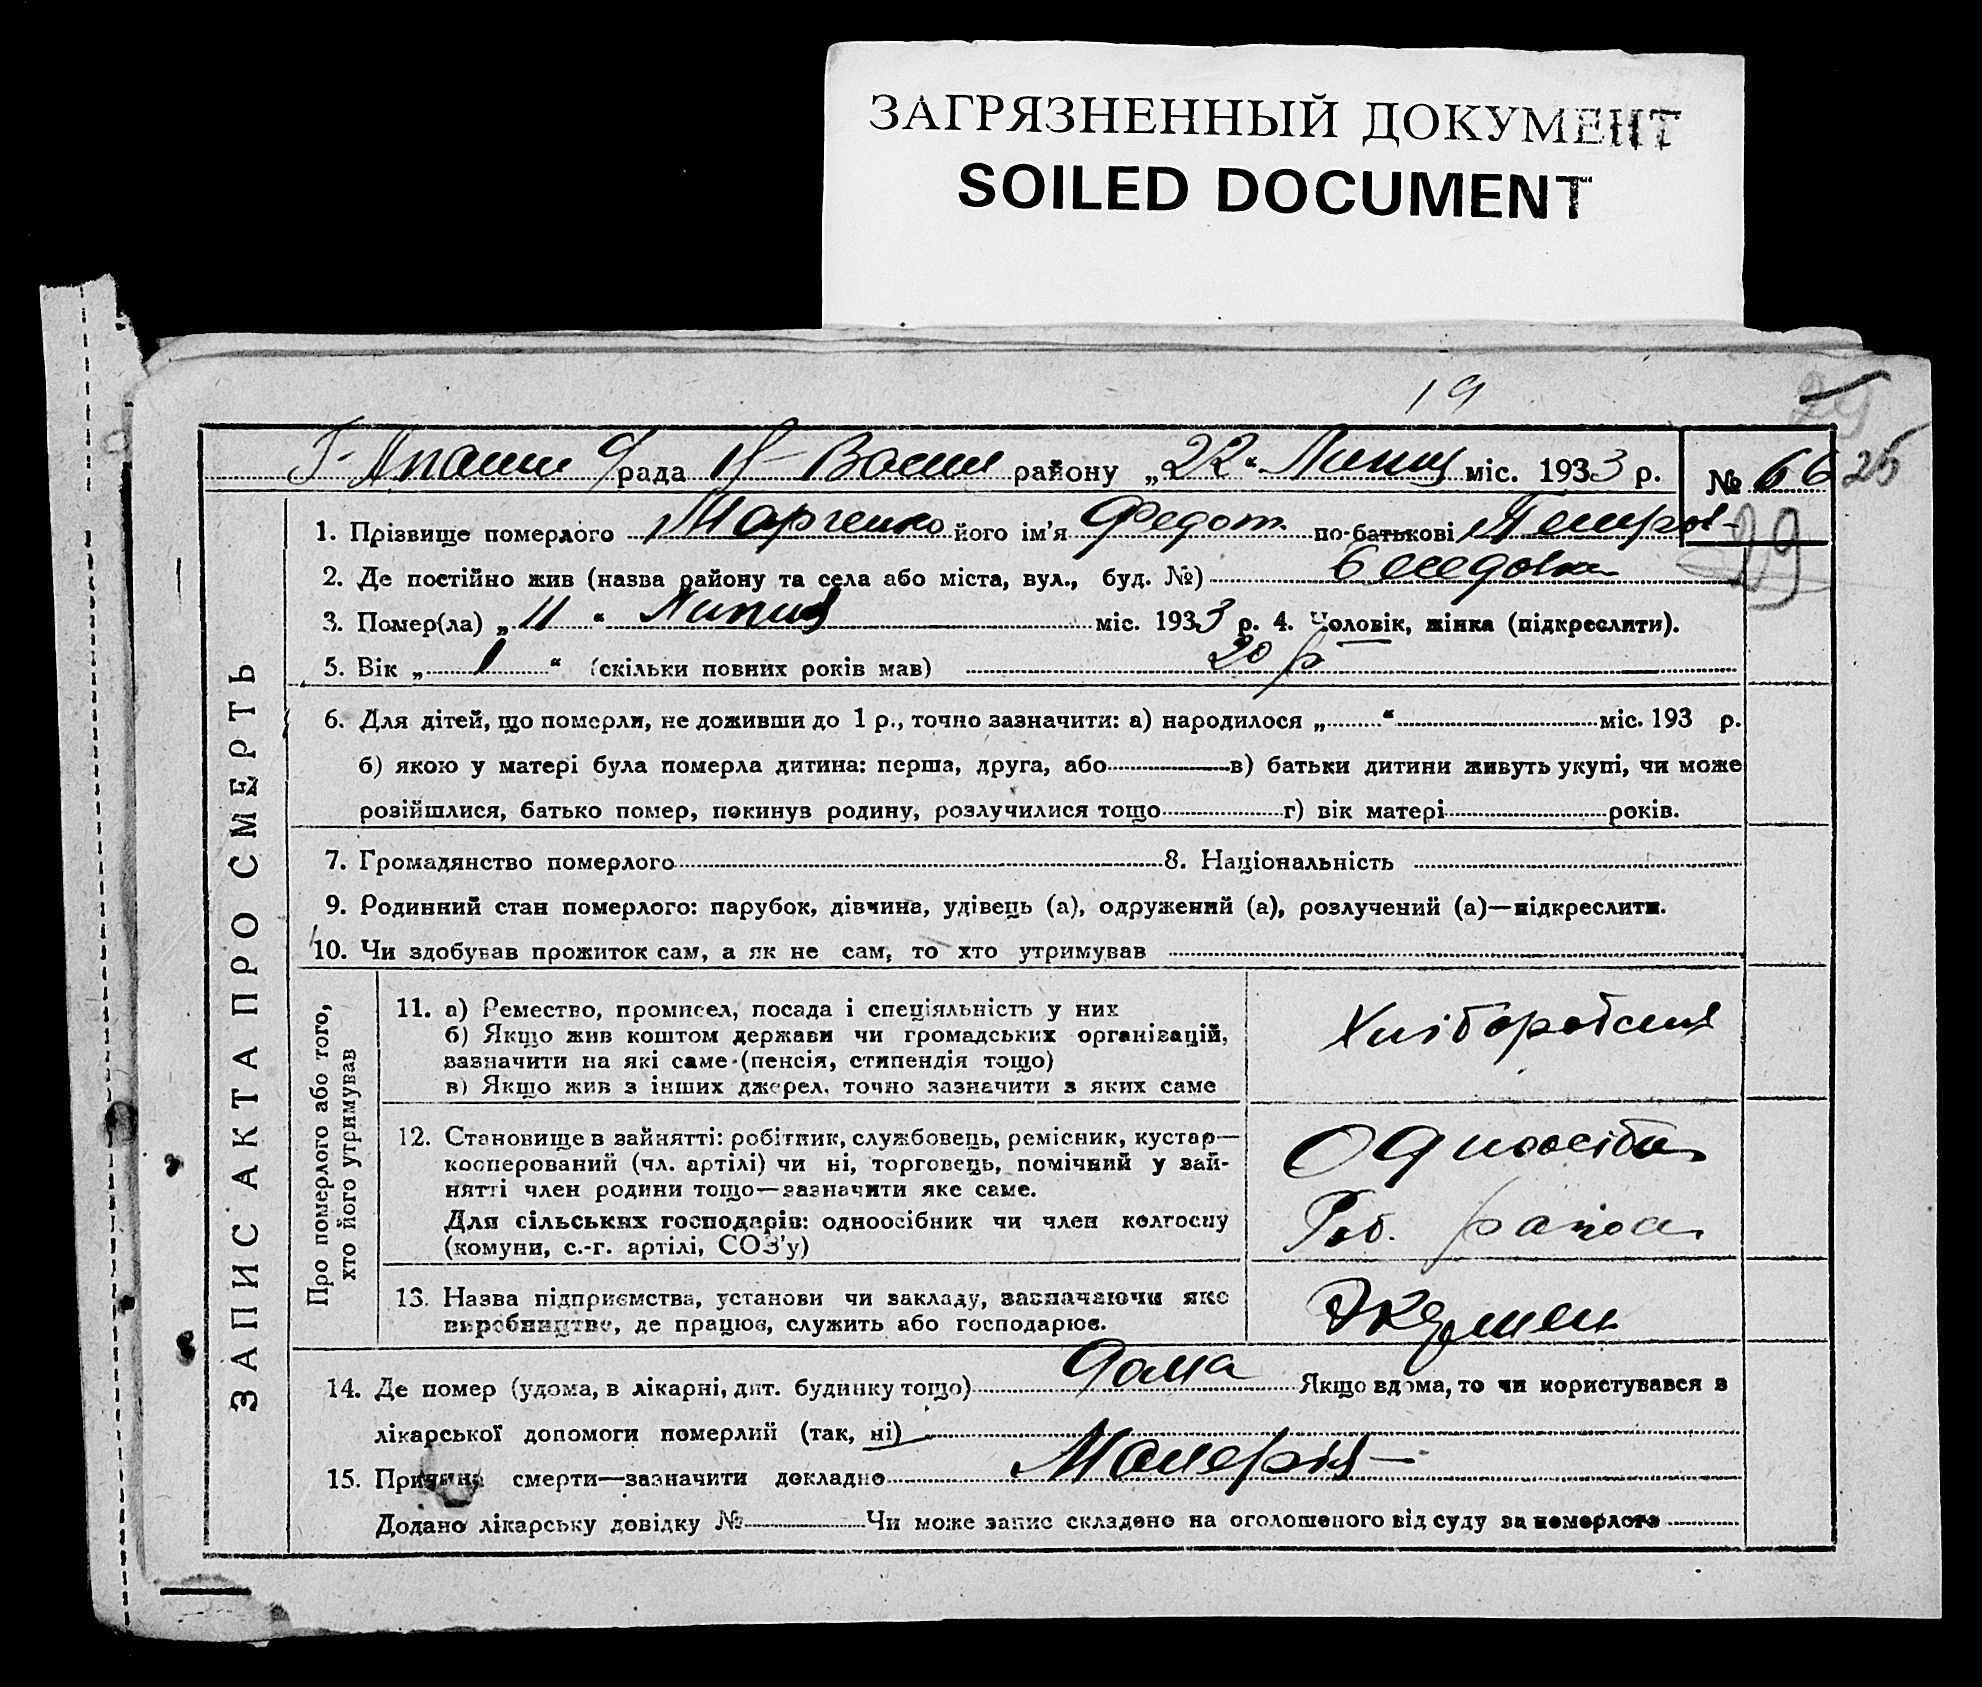 ЗАГРЯЗНЕННЫЙ ДОКУМЕНТ
SOILED DOCUMENT
19
рада района району „22“ Липня міс. 1933 р. № 66
25
29
1. Прізвище померлого Марченко його ім'я Федот по-батькові Петров-
2. Де постійно жив (назва району та села або міста, вул., буд. №) Беседовка
3. Помер(ла) „11“ Липня міс. 1933 р. 4. Чоловік, жінка (підкреслити).
5. Вік „1“ (скільки повних років мав) 20 р
6. Для дітей, що померли, не доживши до 1 р., точно зазначити: а) народилося „ “ міс. 193 р.
б) якою у матері була померла дитина: перша, друга, або в) батьки дитини живуть укупі, чи може
розійшлися, батько помер, покинув родину, розлучилися тощо г) вік матері років.
7. Громадянство померлого 8. Національність
9. Родинний стан померлого: парубок, дівчина, удівець (а), одружений (а), розлучений (а)—підкреслити.
10. Чи здобував прожиток сам, а як не сам, то хто утримував
ЗАПИС АКТА ПРО СМЕРТЬ
Про померлого або того,
хто його утримував
11. а) Ремество, промисел, посада і спеціяльність у них
б) Якщо жив коштом держави чи громадських організацій,
зазначити на які саме (пенсія, стипендія тощо)
в) Якщо жив з інших джерел, точно зазначити з яких саме
12. Становище в зайнятті: робітник, службовець, ремісник, кустар—
кооперований (чл. артілі) чи ні, торговець, помічний у зай-
нятті член родини тощо—зазначити яке саме.
Для сільських господарів: одноосібник чи член колгоспу
(комуни, с.-г. артілі, СОЗ'у)
Роб.
13. Назва підприємства, установи чи закладу, зазначаючи яке
виробництво, де працює, служить або господарює.
14. Де помер (удома, в лікарні, дит. будинку тощо) дома Якщо вдома, то чи користувався з
лікарської допомоги померлий (так, ні)
15. Причина смерти—зазначити докладно Малерія
Додано лікарську довідку № Чи може запис складено на оголошеного від суду за померлого